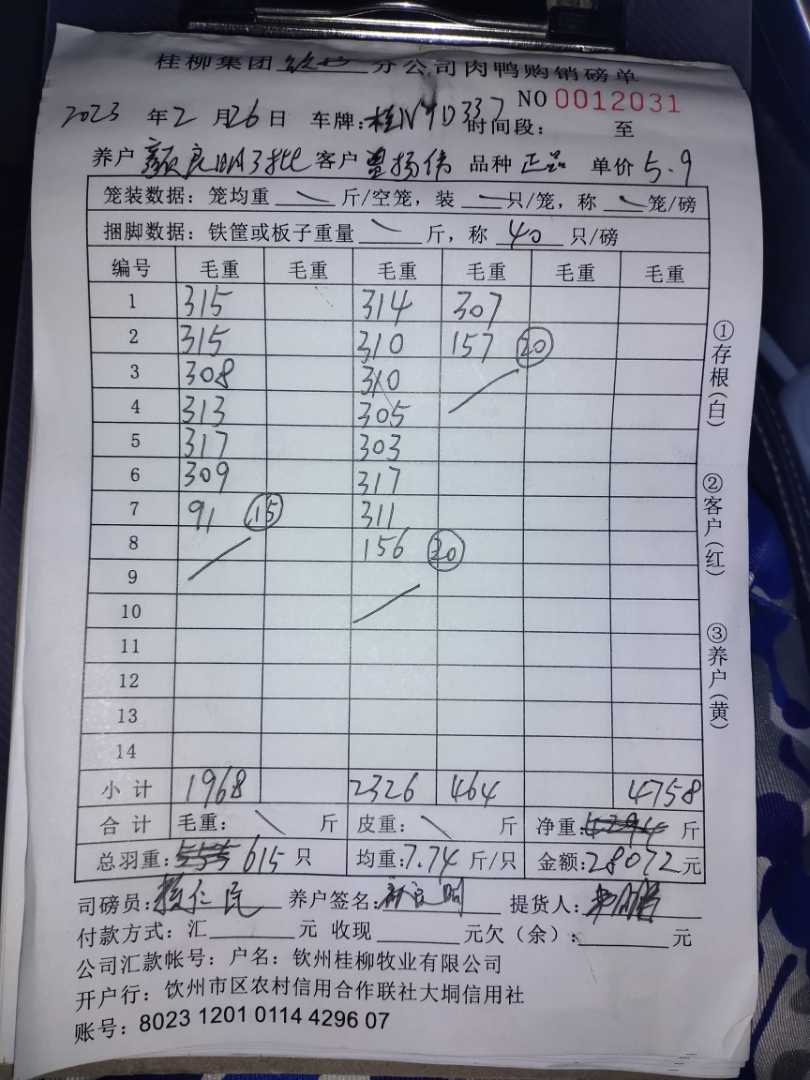 桂柳集团 钦州 分公司肉鸭购销磅单
NO 0012031
2023 年 2 月 26 日 车牌: 桂N9D337 时间段: 至
养户 颜良明3批 客户 曾扬伟 品种 正品 单价 5.9
笼装数据: 笼均重 \ 斤/空笼, 装 \ 只/笼, 称 \ 笼/磅
捆脚数据: 铁筐或板子重量 \ 斤, 称 40 只/磅
编号 毛重 毛重 毛重 毛重 毛重 毛重
1 315 314 307
2 315 310 157 20
3 308 310
4 313 305
5 317 303
6 309 317
7 91 15 311
8 156 20
9
10
11
12
13
14
小计 1968 2326 464 4758
合计 毛重: \ 斤 皮重: \ 斤 净重: 4294 斤
总羽重: 555 615 只 均重: 7.74 斤/只 金额: 28072 元
司磅员: 养户签名: 颜良明 提货人:
付款方式: 汇 元 收现 元欠(余): 元
公司汇款帐号: 户名: 钦州桂柳牧业有限公司
开户行: 钦州市区农村信用合作联社大垌信用社
账号: 8023 1201 0114 4296 07
①存根(白)
②客户(红)
③养户(黄)